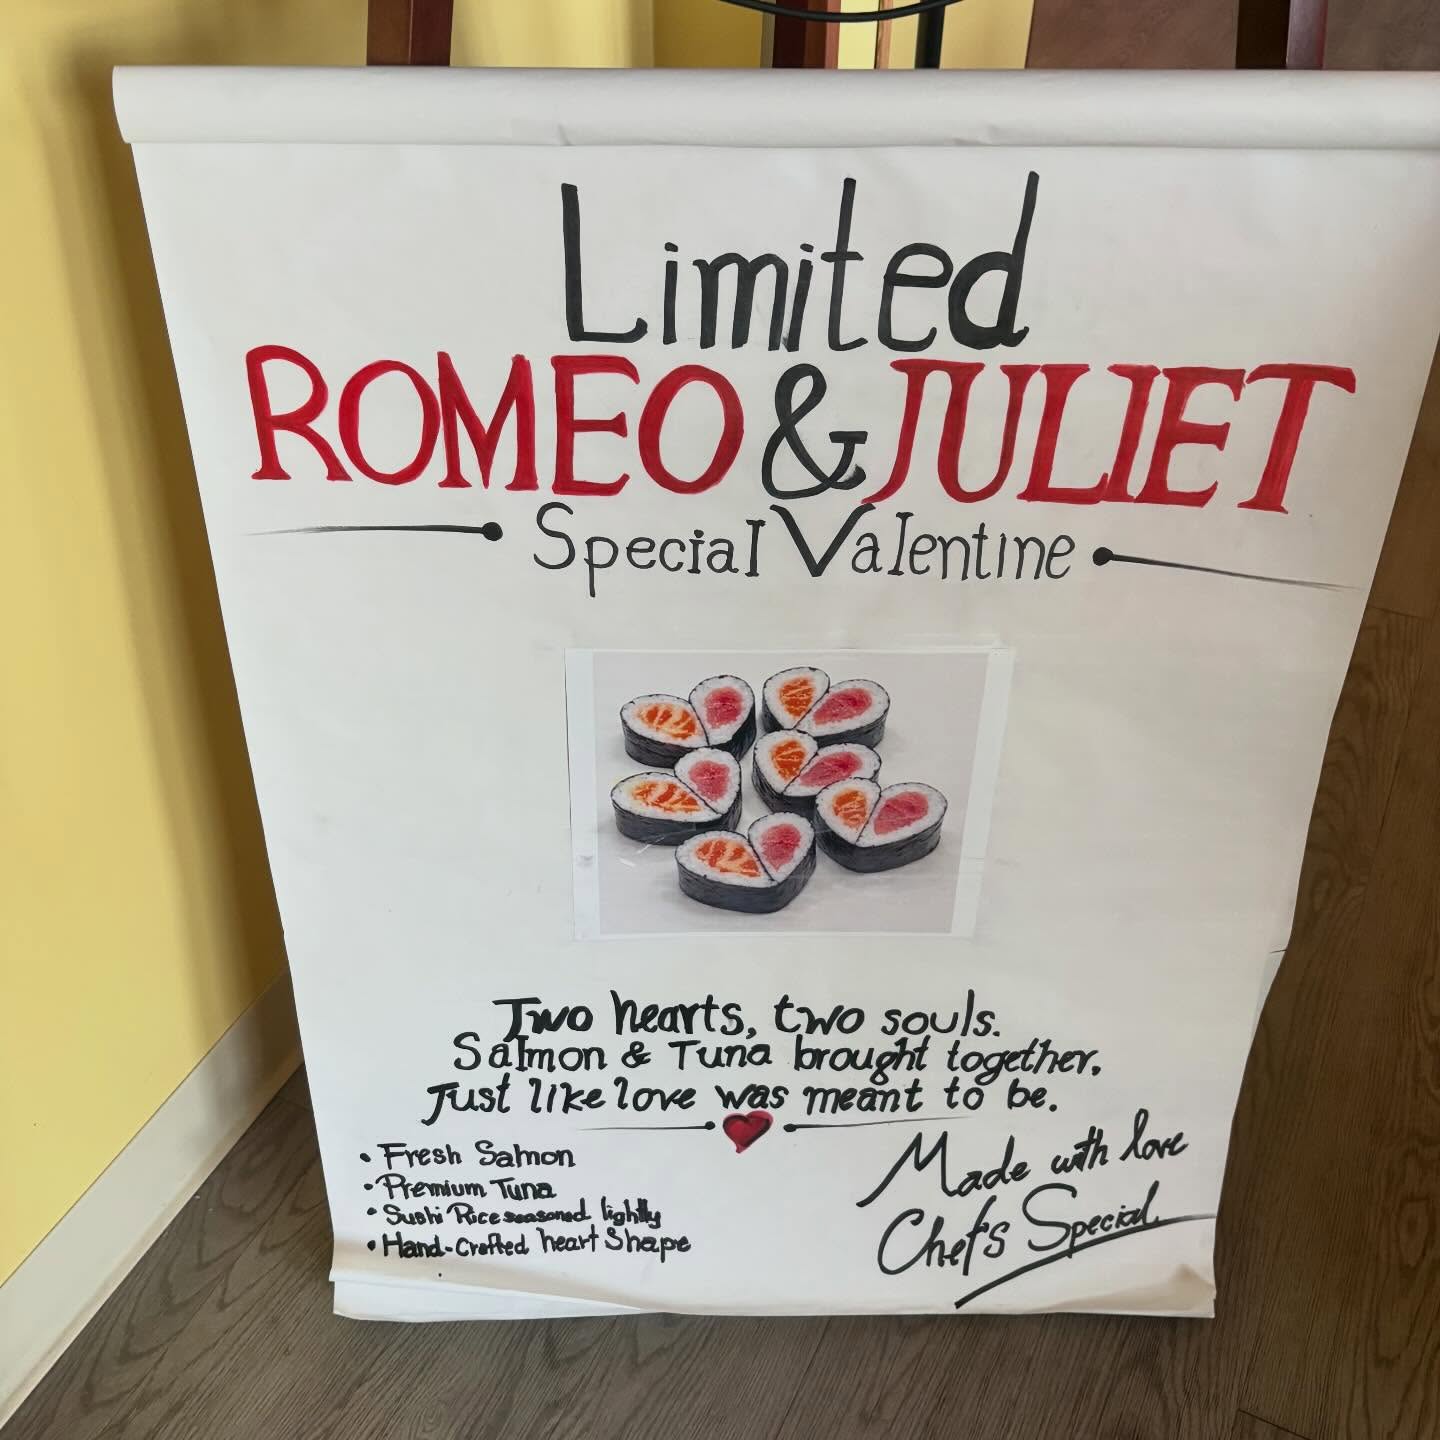 Limited
ROMEO & JULIET
Special Valentine
Two hearts, two souls.
Salmon & Tuna brought together,
Just like love was meant to be.
• Fresh Salmon
• Premium Tuna
• Sushi Rice seasoned lightly
• Hand-Crafted heart Shape
Made with love
Chef's Special